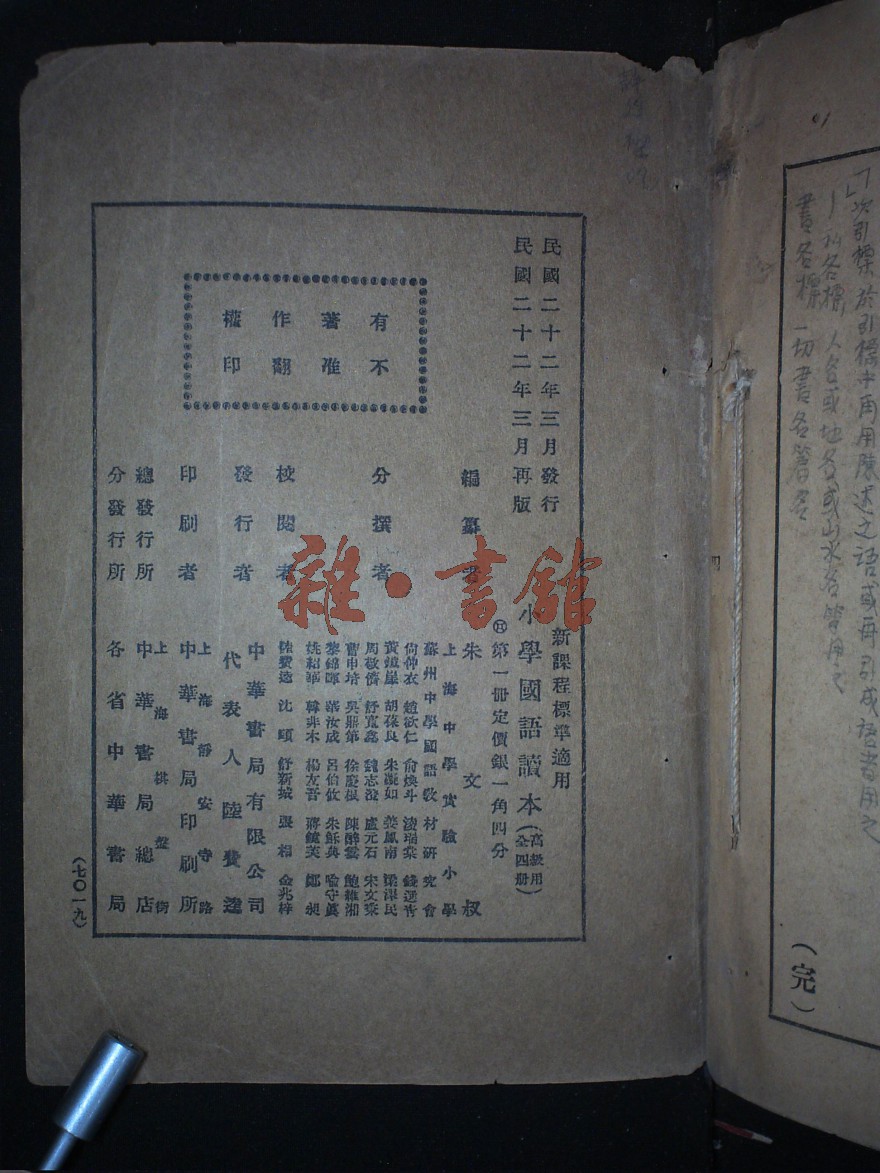 民國二十二年三月發行
民國二十二年三月再版
有不
著准
作翻
權印
新課程標準適用
小學國語讀本（高級用全四册）
第一冊定價銀一角四分
編纂者 朱文叔
上海中學實驗小學
蘇州中學國語教材研究會
分撰者
尙仲衣 趙欲仁 俞煥斗
黃鐵崖 胡葆良 朱凝如 姜鳳南 梁湜民
周敬儕 舒寬鑫 魏志澄 盧元石 宋文棻
曹申培 吳鼎第 徐慶棍 陳醉雲 鮑維湘
黎錦暉 葉汝成 呂伯攸 朱穌典 喻守眞
姚紹華 韓非木 楊友吾 蔣鏡芙 鄭昶
校閱者 陸費逵 沈頤 舒新城 張相 金兆梓
發行者 中華書局有限公司
代表人 陸費逵
印刷者 上海靜安寺路
中華書局印刷所
總發行所 上海棋盤街
中華書局總店
分發行所 各省中華書局
（七〇一九）
雜·書館
次引標 於引標中再用陳述之語或再引成語者用之
私名標，人名或地名或山水名皆用之
書名標 一切書名篇名
（完）